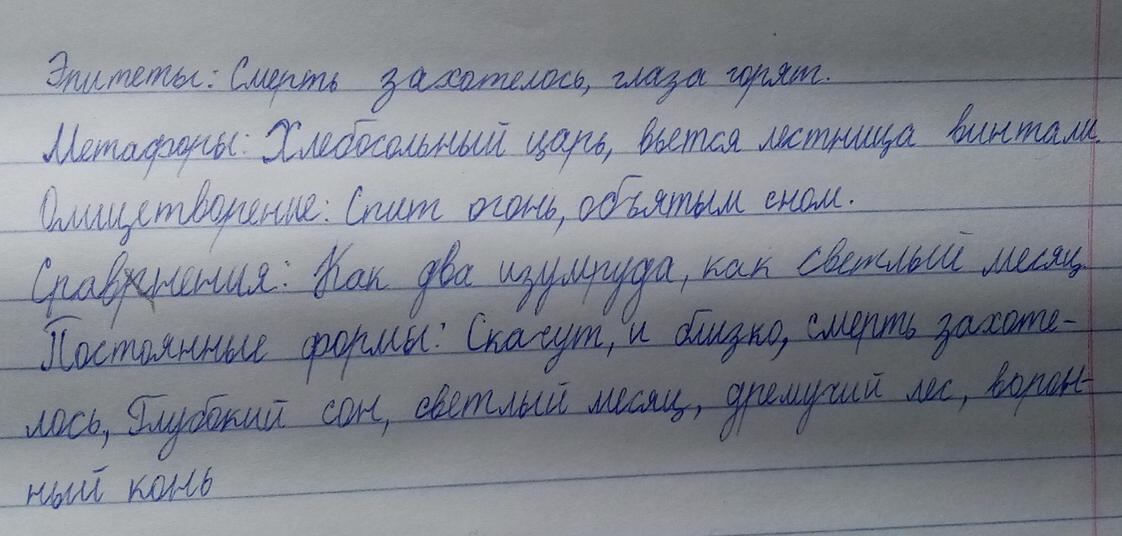 Эпитеты: Смерть захотелось, глаза горят.
Метафоры: Хлебосольный царь, вьется лестница винтали.
Олицетворение: Спит огонь, объятым сном.
Сравнения: Как два изумруда, как светлый месяц
Постоянные формы: Скачут, и близко, смерть захоте-
лось, Глубокий сон, светлый месяц, дремучий лес, ворон-
ный конь